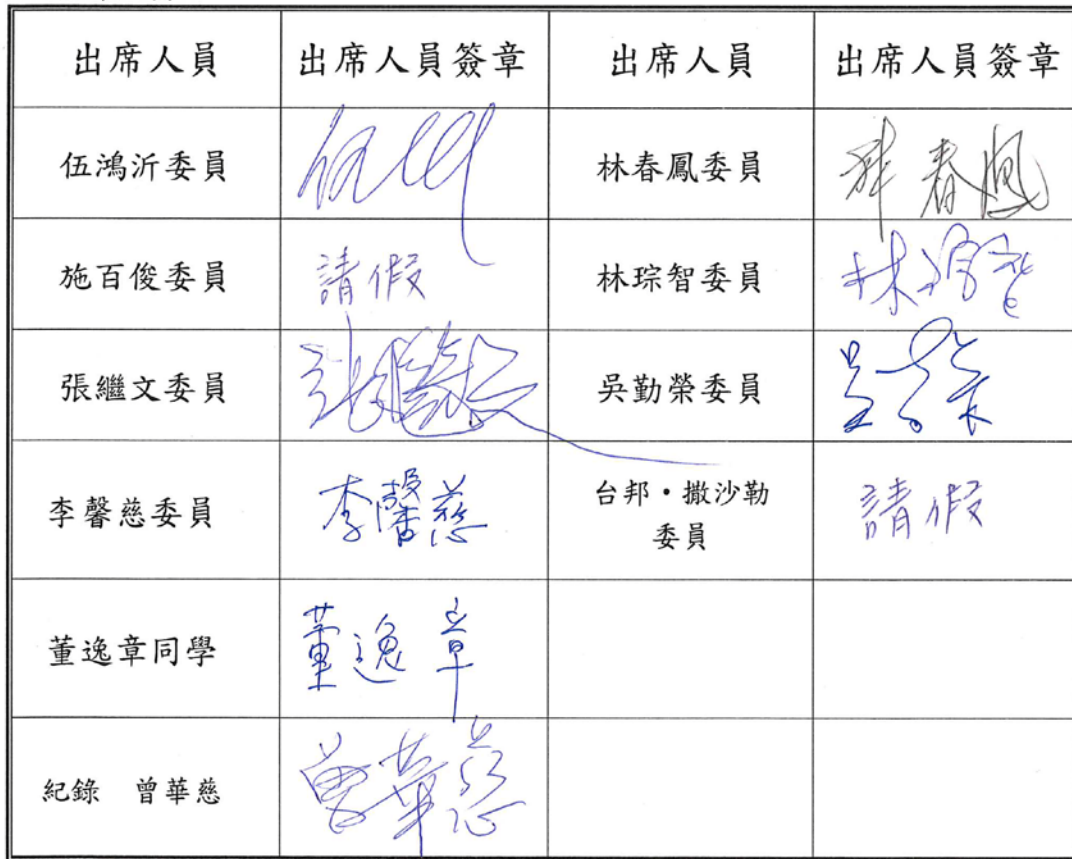 出席人員 出席人員簽章 出席人員 出席人員簽章
伍鴻沂委員 林春鳳委員 林春鳳
施百俊委員 請假 林琮智委員
張繼文委員 張繼文 吳勤榮委員
李馨慈委員 李馨慈 台邦·撒沙勒
委員 請假
董逸章同學 董逸章
紀錄 曾華慈 曾華慈